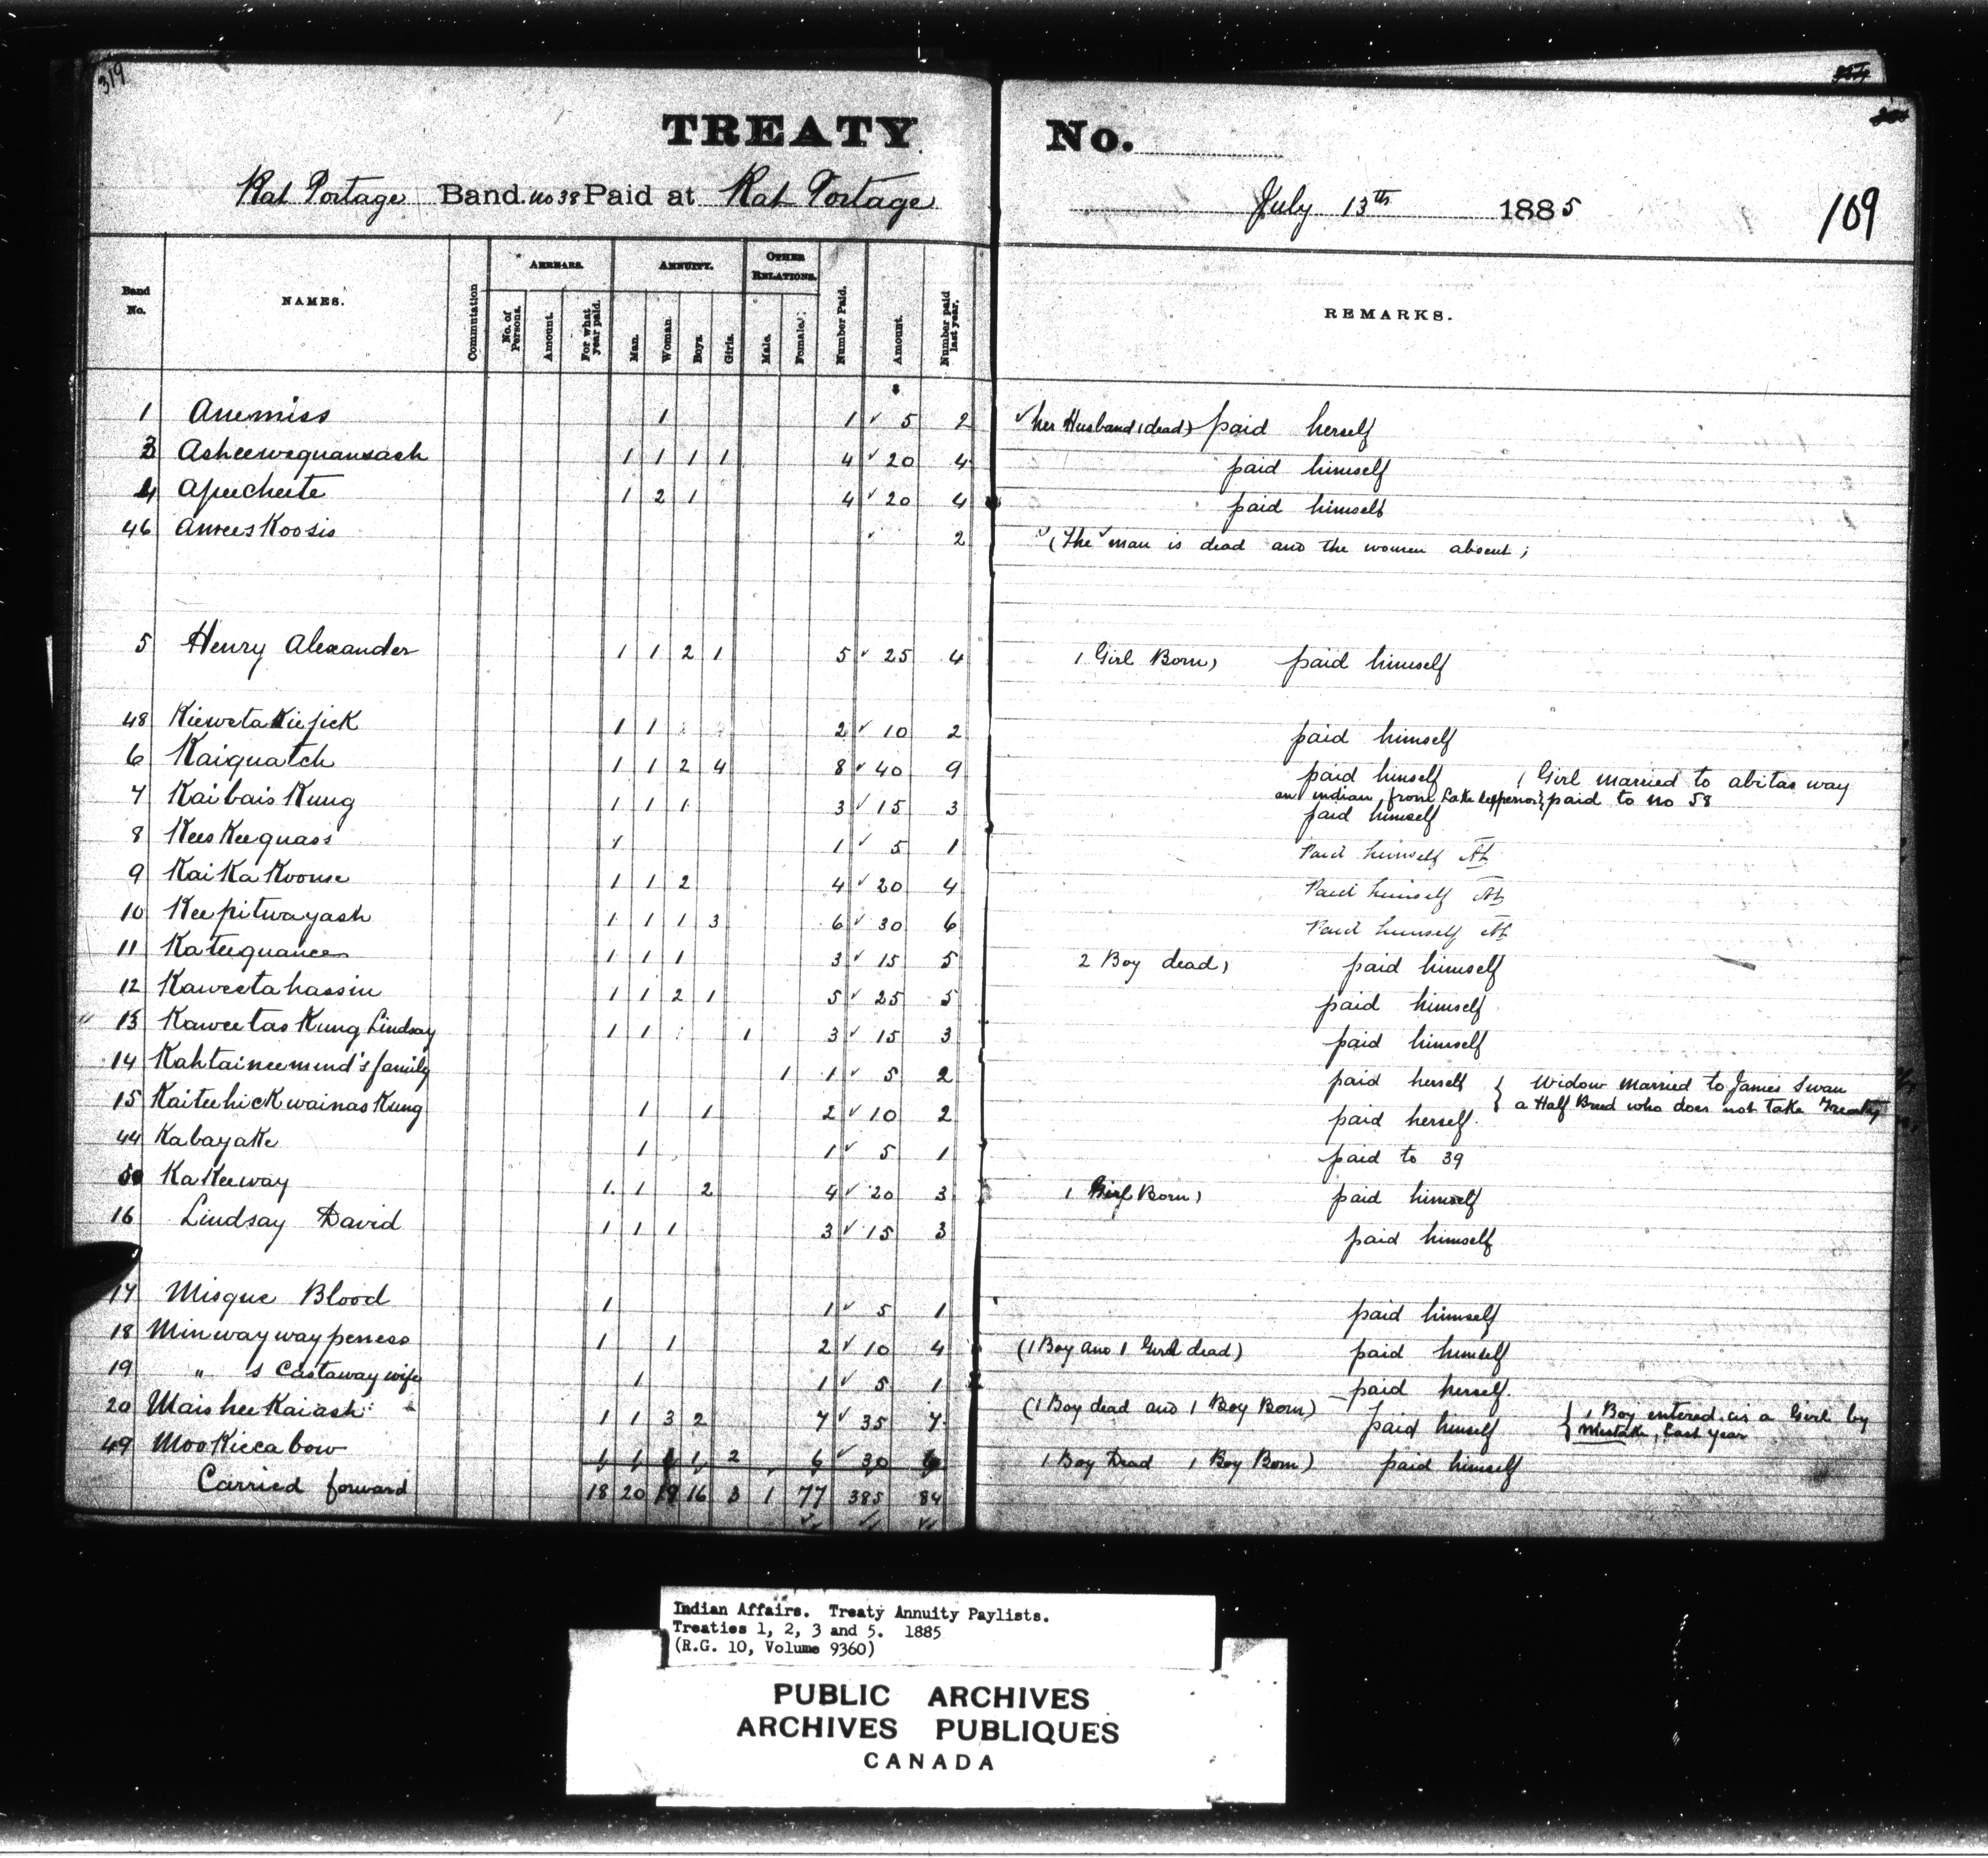 319
TREATY No.
Rat Portage Band No 38 Paid at Rat Portage July 13th 1885 109
Band No. NAMES. Commutation ARREARS. No. of Persons. Amount. For what year paid. ANNUITY. Man. Woman. Boys. Girls. OTHER RELATIONS. Male. Female. Number Paid. Amount. Number paid last year. REMARKS.
$
1 Anemiss 1 1 ✓ 5 2 ✓ her Husband (dead) paid herself
3 Asheewequansash 1 1 1 1 4 ✓ 20 4 paid himself
4 Apeecheete 1 2 1 4 ✓ 20 4 paid himself
46 AmeesKoosis ✓ 2 (The man is dead and the women absent)
5 Henry Alexander 1 1 2 1 5 ✓ 25 4 1 Girl Born) paid himself
48 KiewetaKiejick 1 1 2 ✓ 10 2 paid himself
6 Kaiquatch 1 1 2 4 8 ✓ 40 9 paid himself (Girl married to abitas way
an indian, from Lake Superior} paid to no 58
7 KaibaisKung 1 1 1 3 ✓ 15 3 paid himself
8 KeesKeequass 1 1 ✓ 5 1 Paid himself
9 KaiKaKoouse 1 1 2 4 ✓ 20 4 Paid himself
10 Keepitwayash 1 1 1 3 6 ✓ 30 6 Paid himself
11 Kateequances 1 1 1 3 ✓ 15 5 2 Boy dead) paid himself
12 Kaweetahassin 1 1 2 1 5 ✓ 25 5 paid himself
13 KaweetasKung Lindsay 1 1 1 3 ✓ 15 3 paid himself
14 Kahtaineemund's family 1 1 ✓ 5 2 paid herself { Widow married to James Swan
a Half Breed who does not take Treaty
15 KaiteehicKwainasKung 1 1 2 ✓ 10 2 paid herself
44 KabayaKe 1 1 ✓ 5 1 paid to 39
50 KaKeeway 1 1 2 4 ✓ 20 3 1 Girl Born) paid himself
16 Lindsay David 1 1 1 3 ✓ 15 3 paid himself
17 Misque Blood 1 1 ✓ 5 1 paid himself
18 Minwaywaypeness 1 1 2 ✓ 10 4 (1 Boy and 1 Girl dead) paid himself
19 " s Castaway wife 1 1 ✓ 5 1 paid herself
20 MaisheeKaiash 1 1 3 2 7 ✓ 35 7 (1 Boy dead and 1 Boy Born) paid himself { 1 Boy entered as a Girl by
Mistake, Last year
49 MooKiccabow 1 1 1 1 2 6 ✓ 30 6 1 Boy Dead 1 Boy Born) paid himself
Carried forward 18 20 19 16 3 1 77 385 84
Indian Affairs. Treaty Annuity Paylists.
Treaties 1, 2, 3 and 5. 1885
(R.G. 10, Volume 9360)
PUBLIC ARCHIVES
ARCHIVES PUBLIQUES
CANADA